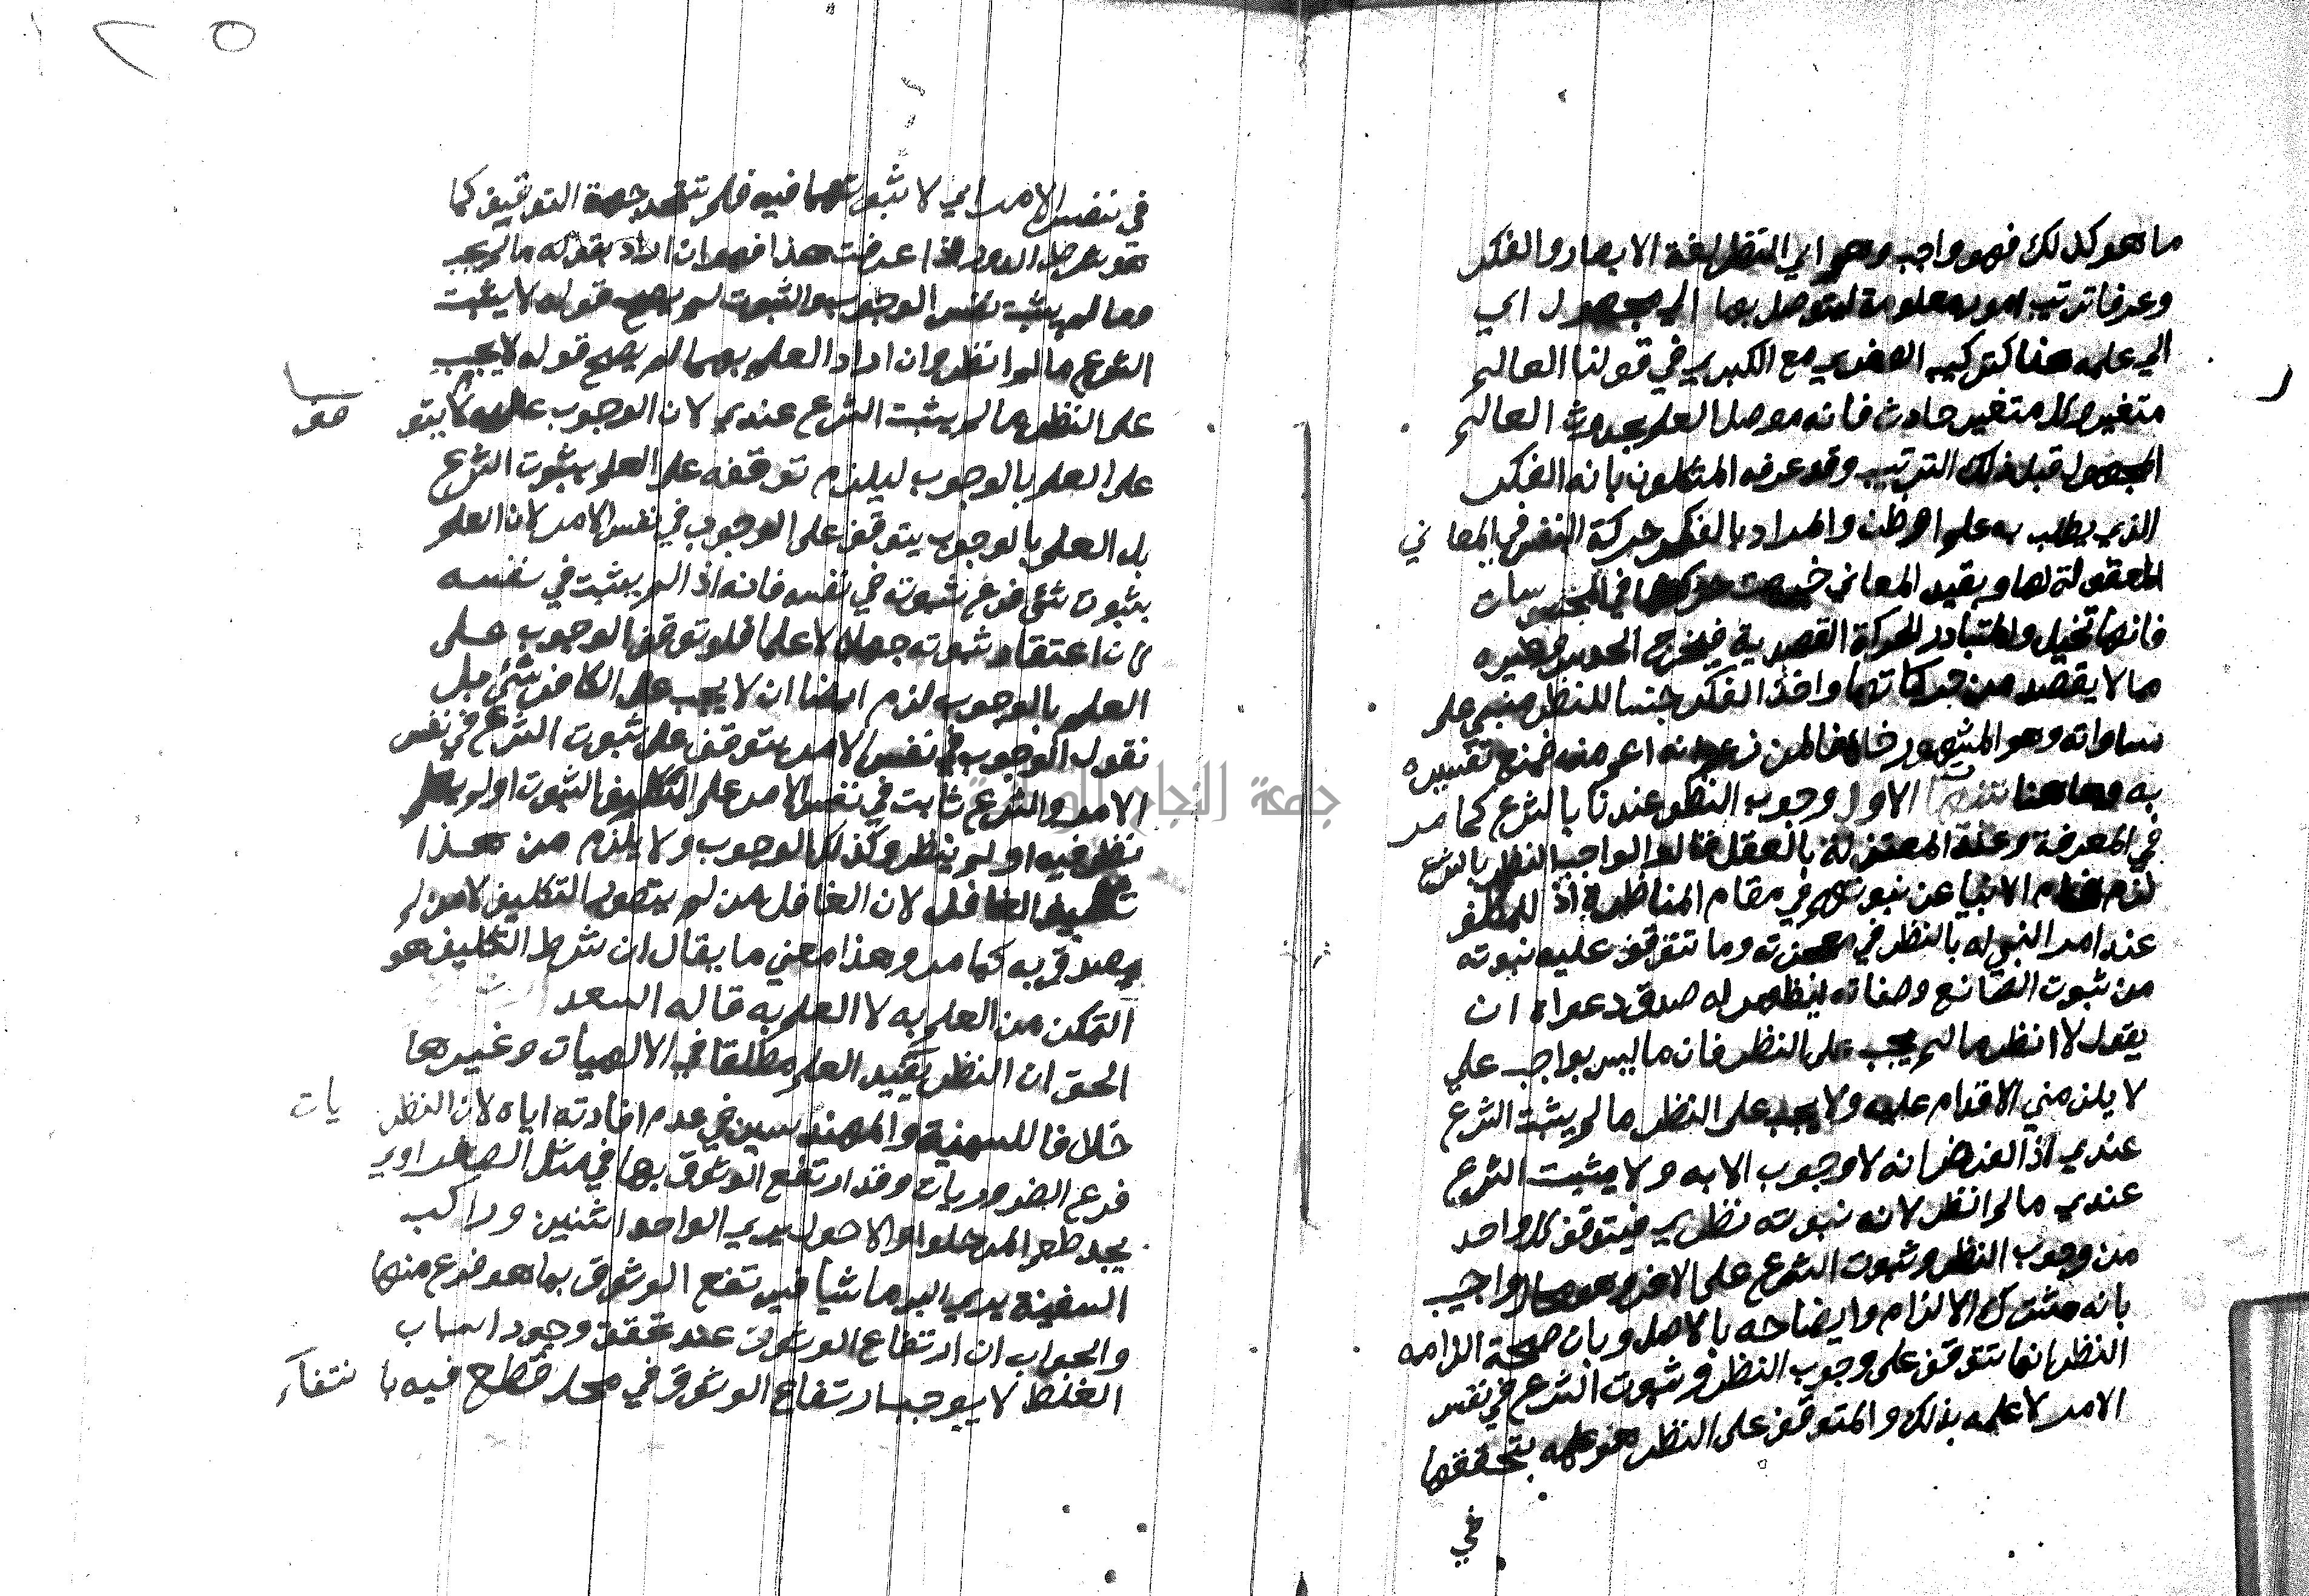 ما هو كذلك فهو واجب وهو اي النظر لغة الابصار والفكر
وعرفا ترتيب امور معلومة ليتوصل بها الي مجهول اي
الي علمه هنا كتركيب الصغري مع الكبري في قولنا العالم
متغير وكل متغير حادث فانه موصل للعلم بحدوث العالم
المجهول قبل ذلك الترتيب وقد عرفه المتكلمون بانه الفكر
الذي يطلب به علم او ظن والمراد بالفكر حركة النفس في المعاني
المعقولة لها وبقيد المعاني خرجت حركتها في المحسوسات
فانها تخيل والمتبادر الحركة القصدية فيخرج الحدس وغيره
مما لا يقصد من حركاتها واخذ الفكر جنسا للنظر مبني على
مساواته وهو المشهور خلافا لمن زعم انه اعم منه فمنع تفسيره
به وهاهنا الاول وجوب النظر عندنا بالشرع كما مر
في المعرفة وعند المعتزلة بالعقل قالوا لو وجب النظر بالشرع
لزم افحام الانبيا عن نبوتهم في مقام المناظرة اذ للمكلف
عند امر النبي له بالنظر في معجزته وما تتوقف عليه نبوته
من ثبوت الصانع وصفاته ليظهر له صدق دعواه ان
يقول لا انظر ما لم يجب على النظر فان ما ليس بواجب علي
لا يلزمني الاقدام عليه ولا يجب على النظر ما لم يثبت الشرع
عندي اذ الفرض انه لا وجوب الا به ولا يثبت الشرع
عندي ما لم انظر لانه ثبوته نظري فيتوقف كل واحد
من وجوب النظر وثبوت الشرع على الاخر وهو محال واجيب
بانه مشترك الالزام وايضاحه بالاصل وبان صحة الزامه
النظر انما تتوقف على وجوب النظر وثبوت الشرع في نفس
الامر لا علمه بذلك والمتوقف على النظر هو علمه بتحققهما
في
في نفس الامر اي لا ثبوتهما فيه فلم تتحد جهة التوقيف كما
هو شرط الدور اذا عرفت هذا فهو ان اراد بقوله ما لم يجب
وما لم يثبت نفس الوجوب والثبوت لم يصح قوله لا يثبت
الشرع ما لم انظر وان اراد العلم بهما لم يصح قوله لا يجب
على النظر ما لم يثبت الشرع عندي لان الوجوب عليه لا يتو قف
على العلم بالوجوب ليلزم توقفه على العلم بثبوت الشرع
بل العلم بالوجوب يتوقف على الوجوب في نفس الامر لان العلم
بثبوت شئ فرع ثبوته في نفسه فانه اذا لم يثبت في نفسه
كان اعتقاد ثبوته جهلا لا علما فلو توقف الوجوب على
العلم بالوجوب لزم ايضا ان لا يجب على الكافر شئ بل
نقول الوجوب في نفس الامر يتوقف على ثبوت الشرع في نفس
الامر والشرع ثابت في نفس الامر علم المكلف الثبوت او لم يعلم
نظر فيه او لم ينظر وكذلك الوجوب ولا يلزم من هذا
تكليف الغافل لان الغافل من لم يتصور التكليف لا من لم
يصدق به كما مر وهذا معني ما يقال ان شرط التكليف هو
التمكن من العلم به لا العلم به قاله السعد
الحق ان النظر يفيد العلم مطلقا في الالهيات وغيرها
خلافا للسمنية والمهندسين في عدم افادته اياه لان النظر يات
فرع الضروريات وقد ارتفع الوثوق بها في مثل الصفراوي
يجد طعم الحلو مرا والاحول يري الواحد اثنين وراكب
السفينة يري البر ماشيا فيرتفع الوثوق بما هو فرع منها
والجواب ان ارتفاع الوثوق عند تحقق وجود اسباب
الغلط لا يوجب ارتفاع الوثوق في محل قطع فيه با نتفآء
جمعة النجاح